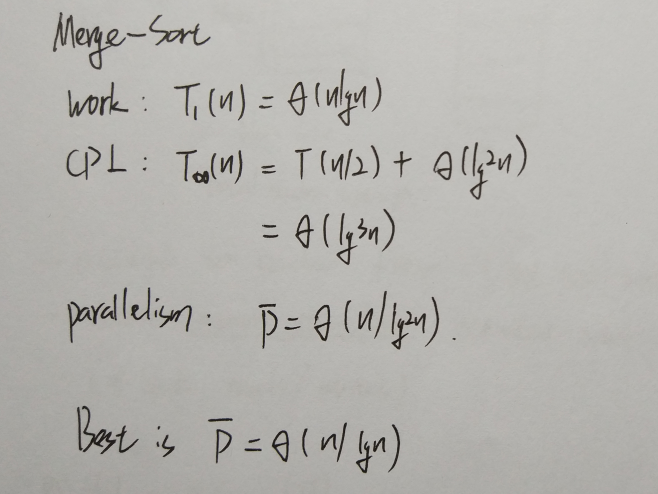 Merge-Sort
work: T₁(n) = θ(nlgn)
CPL: T∞(n) = T(n/2) + θ(lg²n)
= θ(lg³n)
parallelism: P̅ = θ(n/lg²n).
Best is P̅ = θ(n/lgn)